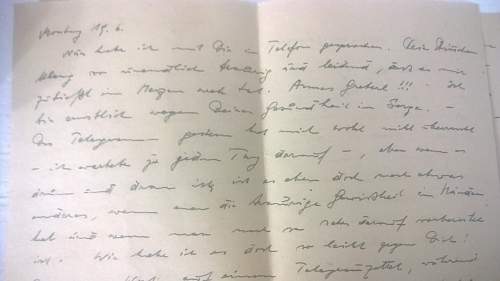 Montag 19. 6.
Nun habe ich mit Dir im Telefon gesprochen. Dein Stimmchen
klang so unendlich traurig und leidend, dass es mir
zutiefst im Herzen weh tat. Armes Gretel!!! - Ich
bin ernstlich wegen Deiner Gesundheit in Sorge. -
Das Telegramm gestern hat mich wohl nicht
- ich wartete ja jeden Tag darauf -, aber wenn es
dann und dann ist, ist es eben doch noch etwas
anderes, wenn man die traurige Gewissheit in Händen
hat und wenn man noch so sehr darauf vorbereitet
ist. Wie habe ich es doch so leicht gegen Dich!
auf einem Telegrammzettel, während